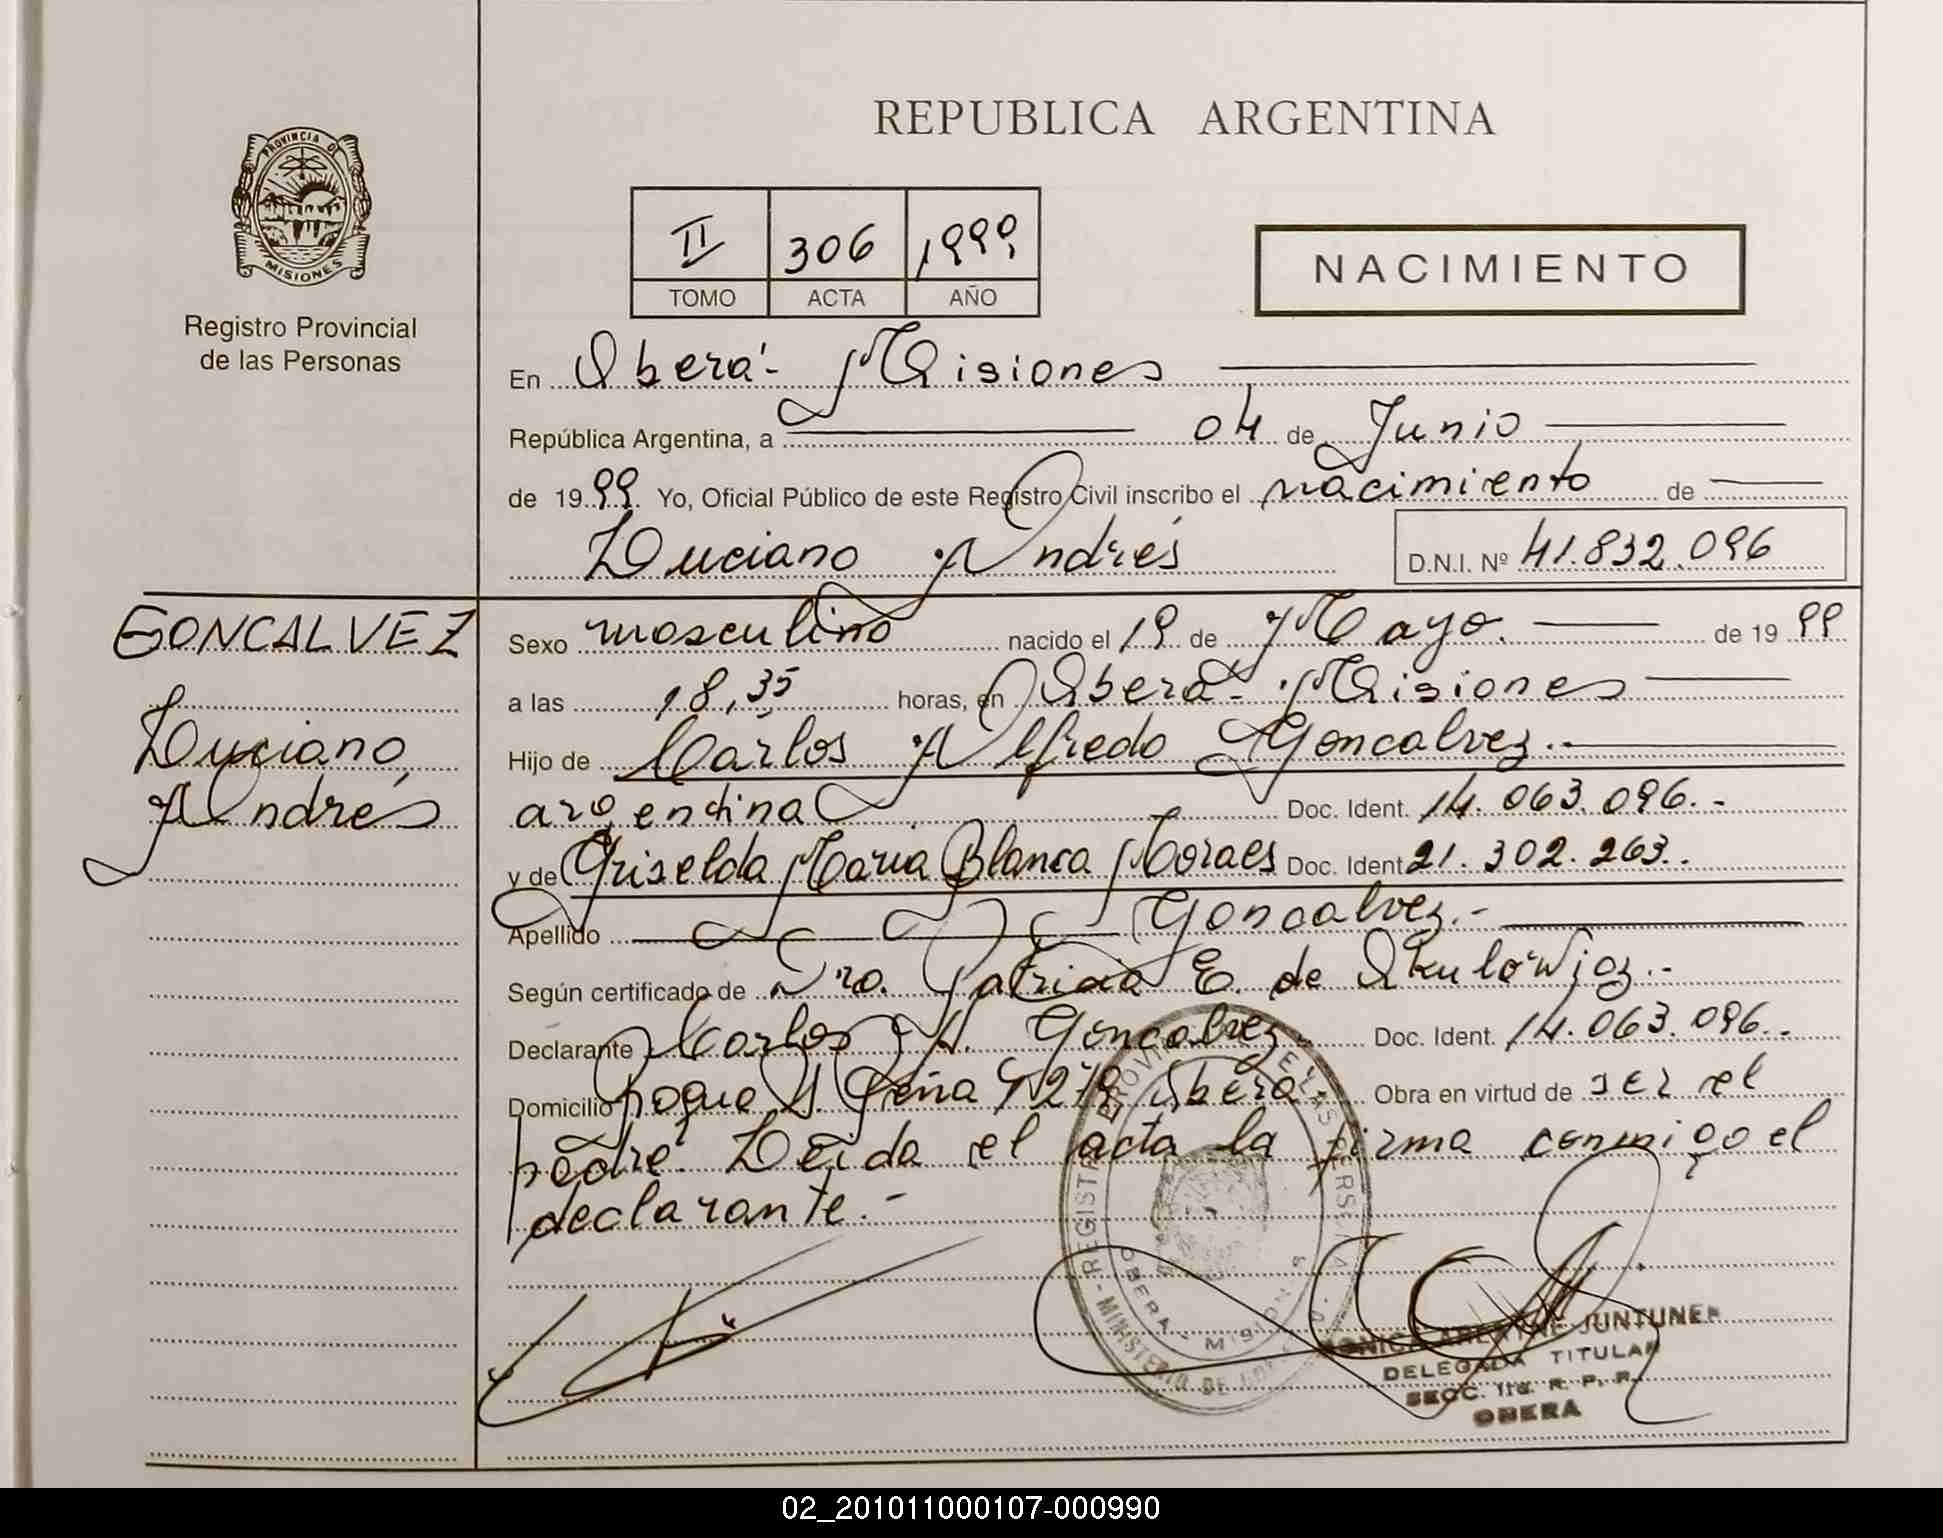 REPUBLICA ARGENTINA
PROVINCIA DE
MISIONES
Registro Provincial
de las Personas
II 306 1999
TOMO ACTA AÑO
NACIMIENTO
En Oberá - Misiones
República Argentina, a 04 de Junio
de 1999 Yo, Oficial Público de este Registro Civil inscribo el nacimiento de
Luciano Andrés D.N.I. Nº 41.832.096
GONCALVEZ
Luciano,
Andrés
Sexo masculino nacido el 19 de Mayo. de 1999
a las 18,35 horas, en Oberá - Misiones
Hijo de Carlos Alfredo Goncalvez.-
argentina Doc. Ident. 14.063.096.-
y de Griselda Maria Blanca Moraes Doc. Ident 21.302.263.-
Apellido Goncalvez.-
Según certificado de Dra. Patricia E. de
Declarante Carlos A. Goncalvez. Doc. Ident. 14.063.096.-
Domicilio Roque S. Peña Oberá. Obra en virtud de ser el
padre. Leida el acta la firma conmigo el
declarante.-
OBERA - MISIONES
JUNTUNEN
DELEGADA TITULAR
SECC. 1ra. R. P. P.
OBERA
02_201011000107-000990